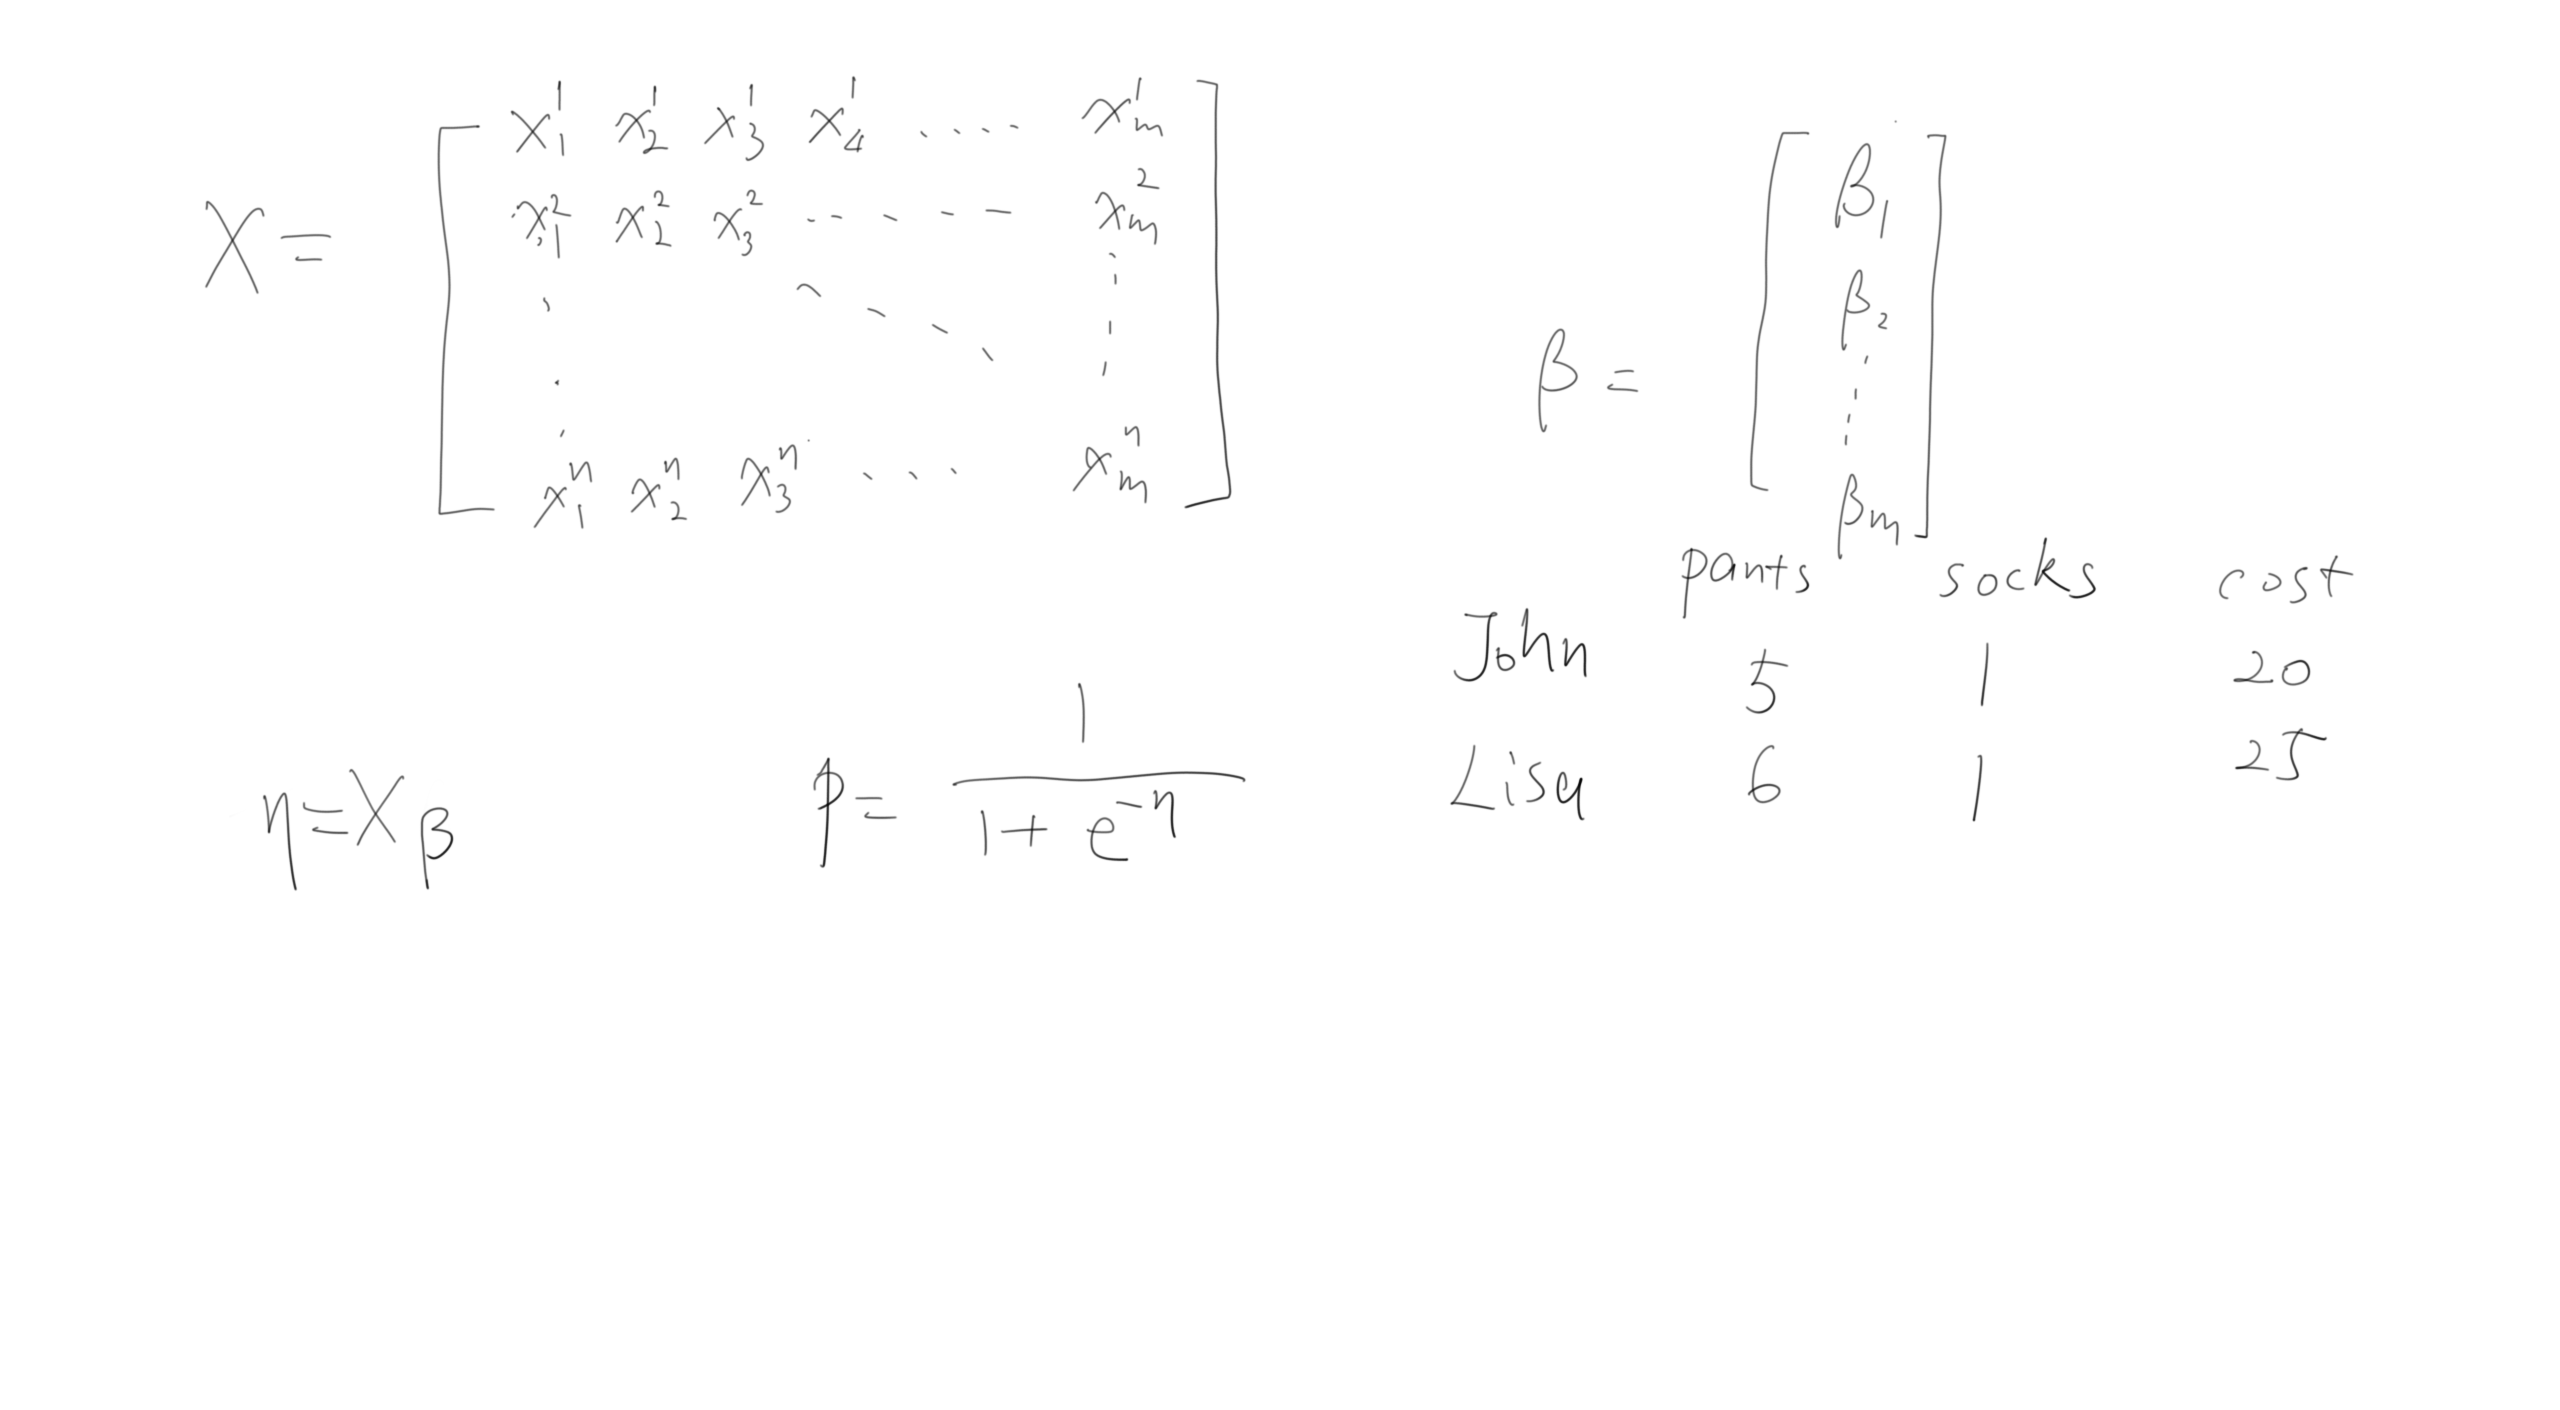 X = [ x₁¹ x₂¹ x₃¹ x₄¹ .... xₘ¹
x₁² x₂² x₃² ..---- xₘ²
x₁ⁿ x₂ⁿ x₃ⁿ ... xₘⁿ ]
β = [ β₁
β₂
βₘ ]
pants socks cost
John 5 1 20
Lisa 6 1 25
η = Xβ
p = 1 / (1 + e^-η)